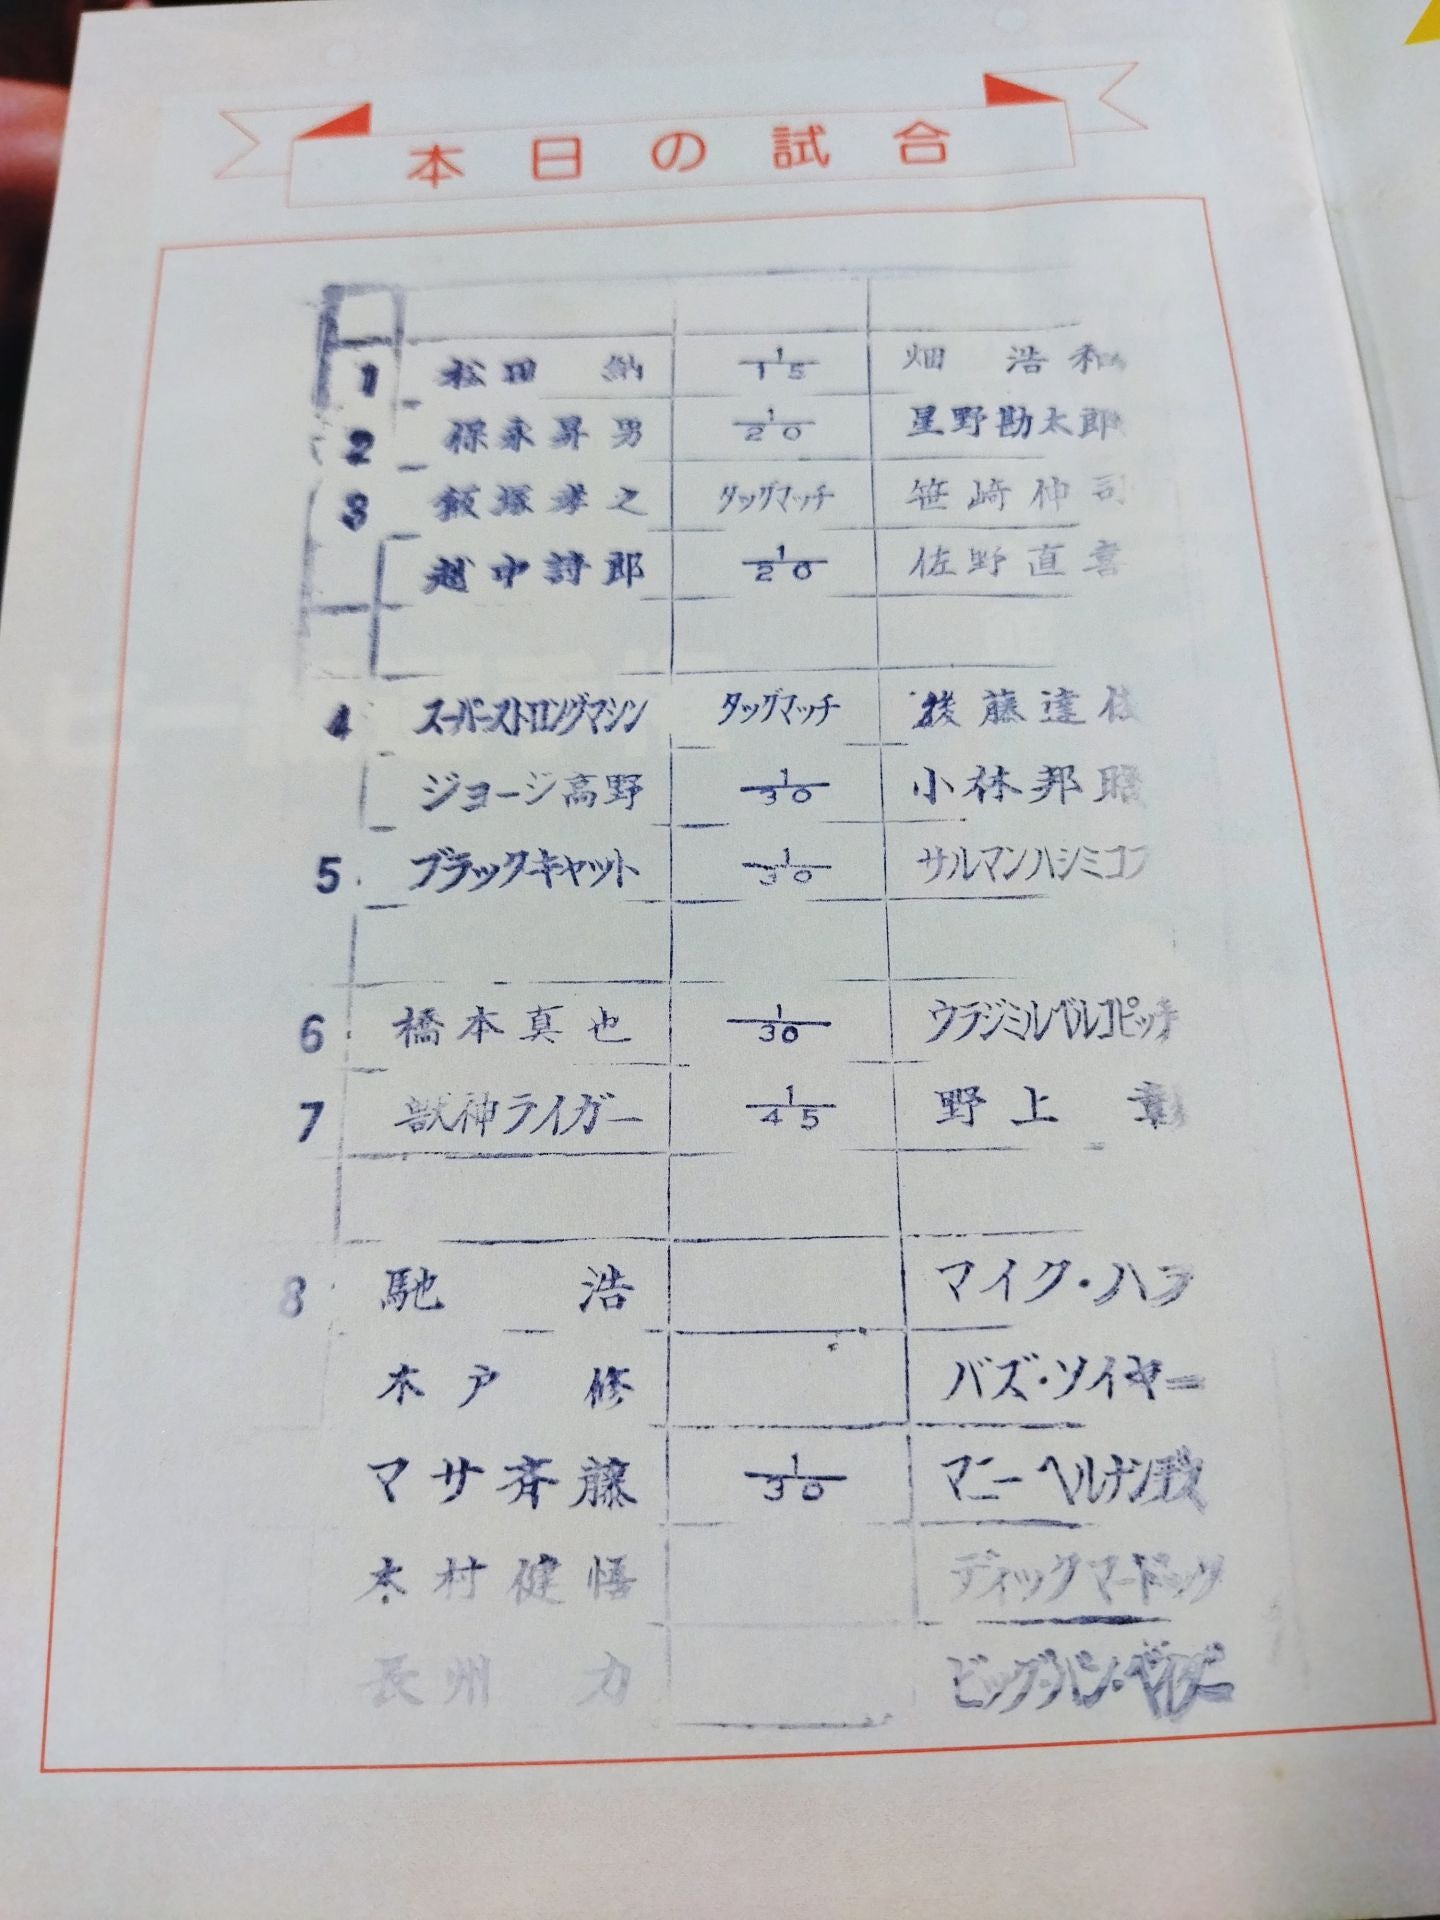 本日の試合
1 松田 納 1/15 畑 浩和
2 保永昇男 1/20 星野勘太郎
3 飯塚孝之 タッグマッチ 笹崎伸司
越中詩郎 1/20 佐野直喜
4 スーパーストロングマシン タッグマッチ 後藤達俊
ジョージ高野 1/30 小林邦昭
5 ブラックキャット 1/30 サルマンハシミコフ
6 橋本真也 1/30 ウラジミルベルコビッチ
7 獣神ライガー 1/45 野上 彰
8 馳 浩 マイク・ハラ
木戸 修 バズ・ソイヤー
マサ斉藤 1/30 マニーヘルナンデス
木村健悟 ディックマードック
長州 力 ビッグ・バン・ベイダー